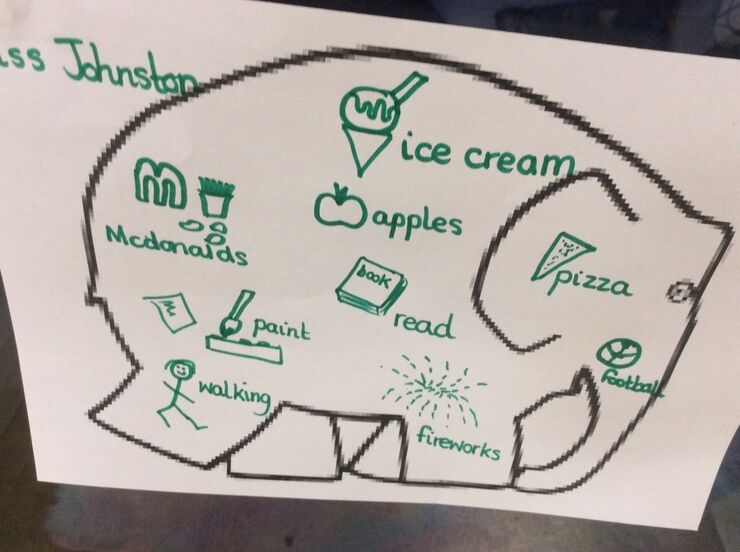 ss Johnston
ice cream
apples
Mcdonalds
book
pizza
read
paint
football
walking
fireworks